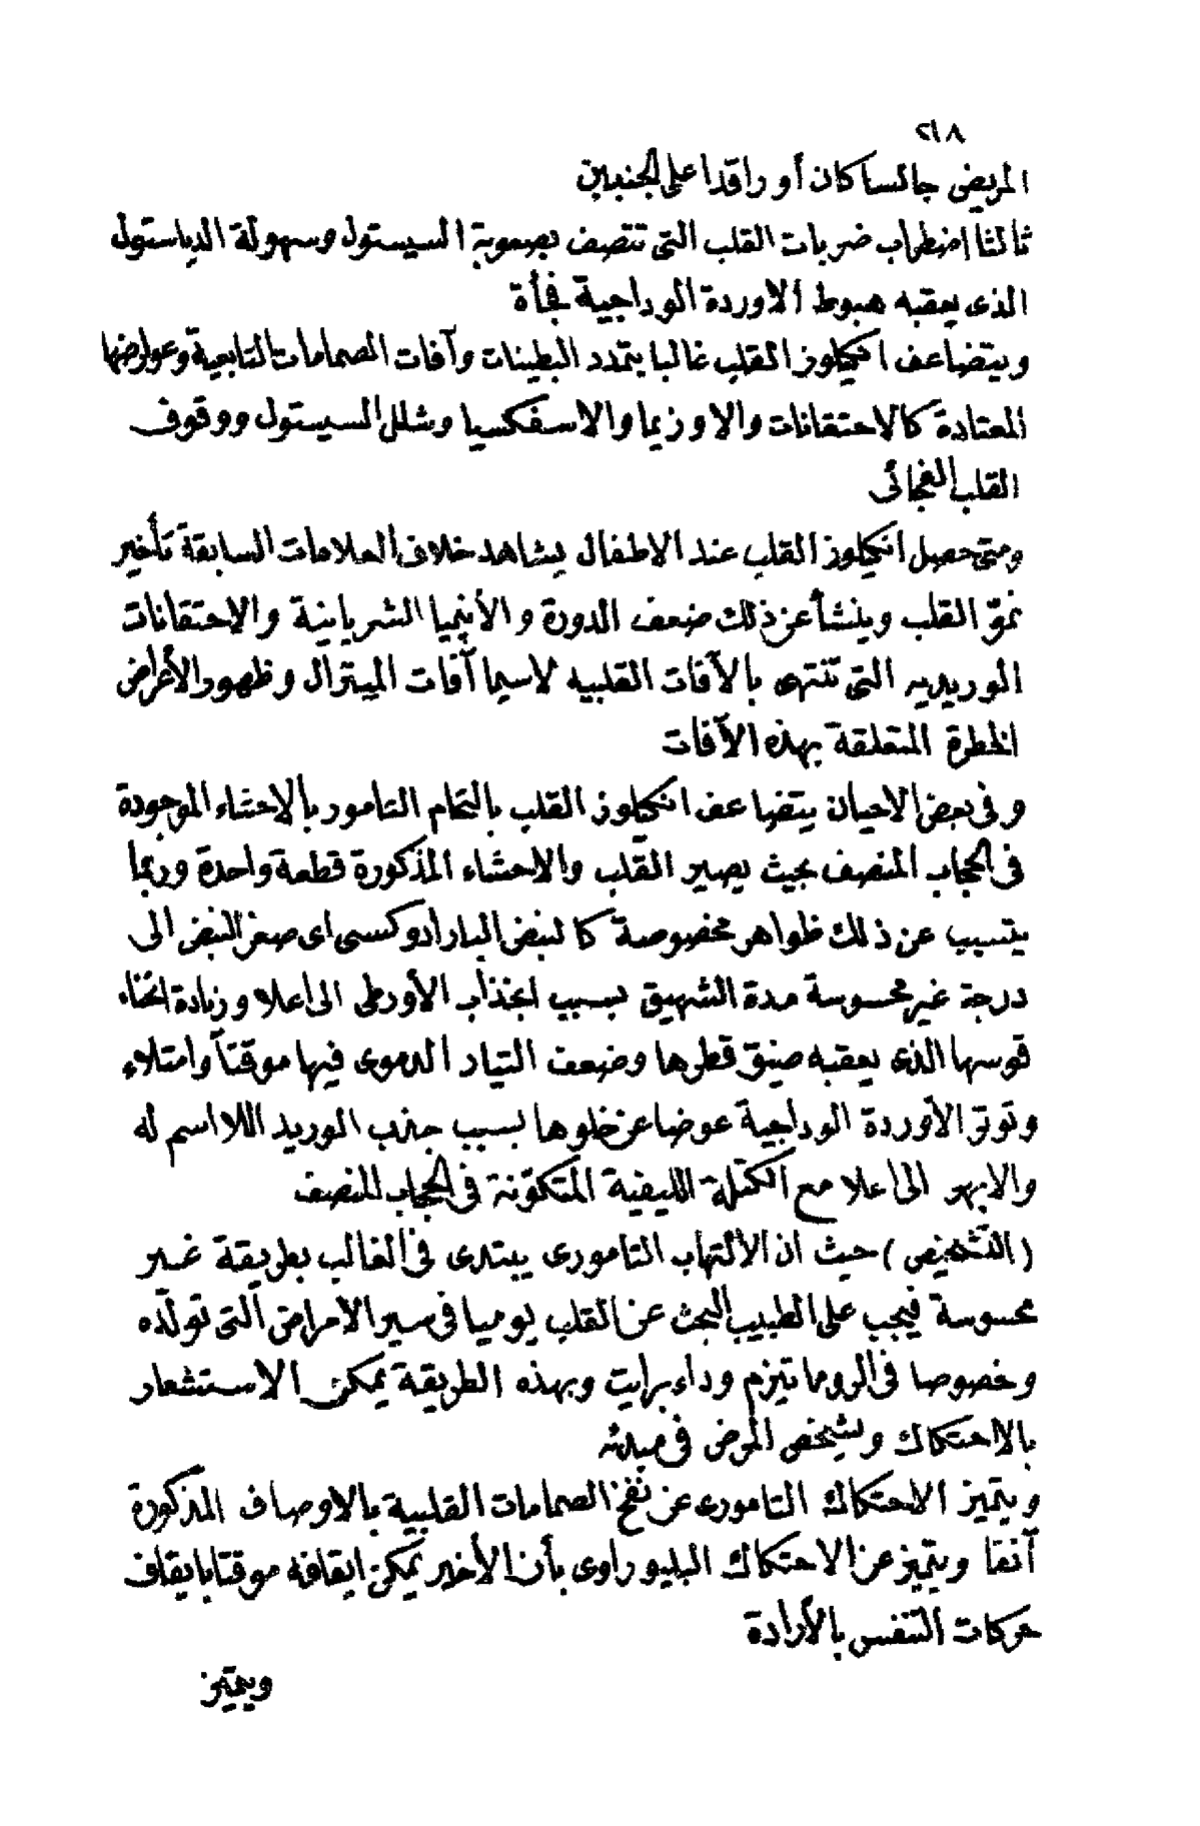 ٢١٨
المريض جالسا كان أو راقدا على الجنبين
ثالثا اضطراب ضربات القلب التى تتصف بصعوبة السيستول وسهولة الدياستول
الذى يعقبه هبوط الاوردة الوداجية فجأة
ويتضاعف انكيلوز القلب غالبا بتمدد البطينات وآفات الصمامات التابعية وعوارضها
المعتادة كالاحتقانات والاوزيما والاسفكسيا وشلل السيستول ووقوف
القلب الفجائى
ومتى حصل انكيلوز القلب عند الاطفال يشاهد خلاف العلامات السابقة تأخير
نموّ القلب وينشأ عن ذلك ضعف الدورة والأنيميا الشريانية والاحتقانات
الوريديه التى تنتهى بالآفات القلبيه لاسيما آفات الميترال وظهور الأعراض
الخطرة المتعلقة بهذه الآفات
وفى بعض الاحيان يتضاعف انكيلوز القلب بالتحام التامور بالاحشاء الموجودة
فى الحجاب المنصف بحيث يصير القلب والاحشاء المذكورة قطعة واحدة وربما
يتسبب عن ذلك ظواهر مخصوصة كالنبض البارادوكسى اى صغر النبض الى
درجة غير محسوسة مدة الشهيق بسبب انجذاب الأورطى الى اعلا وزيادة انحناء
قوسها الذى يعقبه ضيق قطرها وضعف التيار الدموى فيها موقتاً وامتلاء
وتوتر الأوردة الوداجية عوضا عن خلوها بسبب جذب الوريد اللااسم له
والابهر الى اعلا مع الكتلة الليفية المتكوّنة فى الحجاب المنصف
(التشخيص) حيث ان الالتهاب التامورى يبتدى فى الغالب بطريقة غير
محسوسة فيجب على الطبيب البحث عن القلب يوميا فى سير الامراض التى تولّده
وخصوصا فى الروماتيزم وداء برايت وبهذه الطريقة يمكن الاستشعار
بالاحتكاك وتشخص المرض فى مبدئه
ويتميز الاحتكاك التامورى عن نفخ الصمامات القلبية بالاوصاف المذكورة
آنفا ويتميز عن الاحتكاك البليوراوى بأن الأخير يمكن ايقافه موقتا بايقاف
حركات التنفس بالأرادة
ويتميز